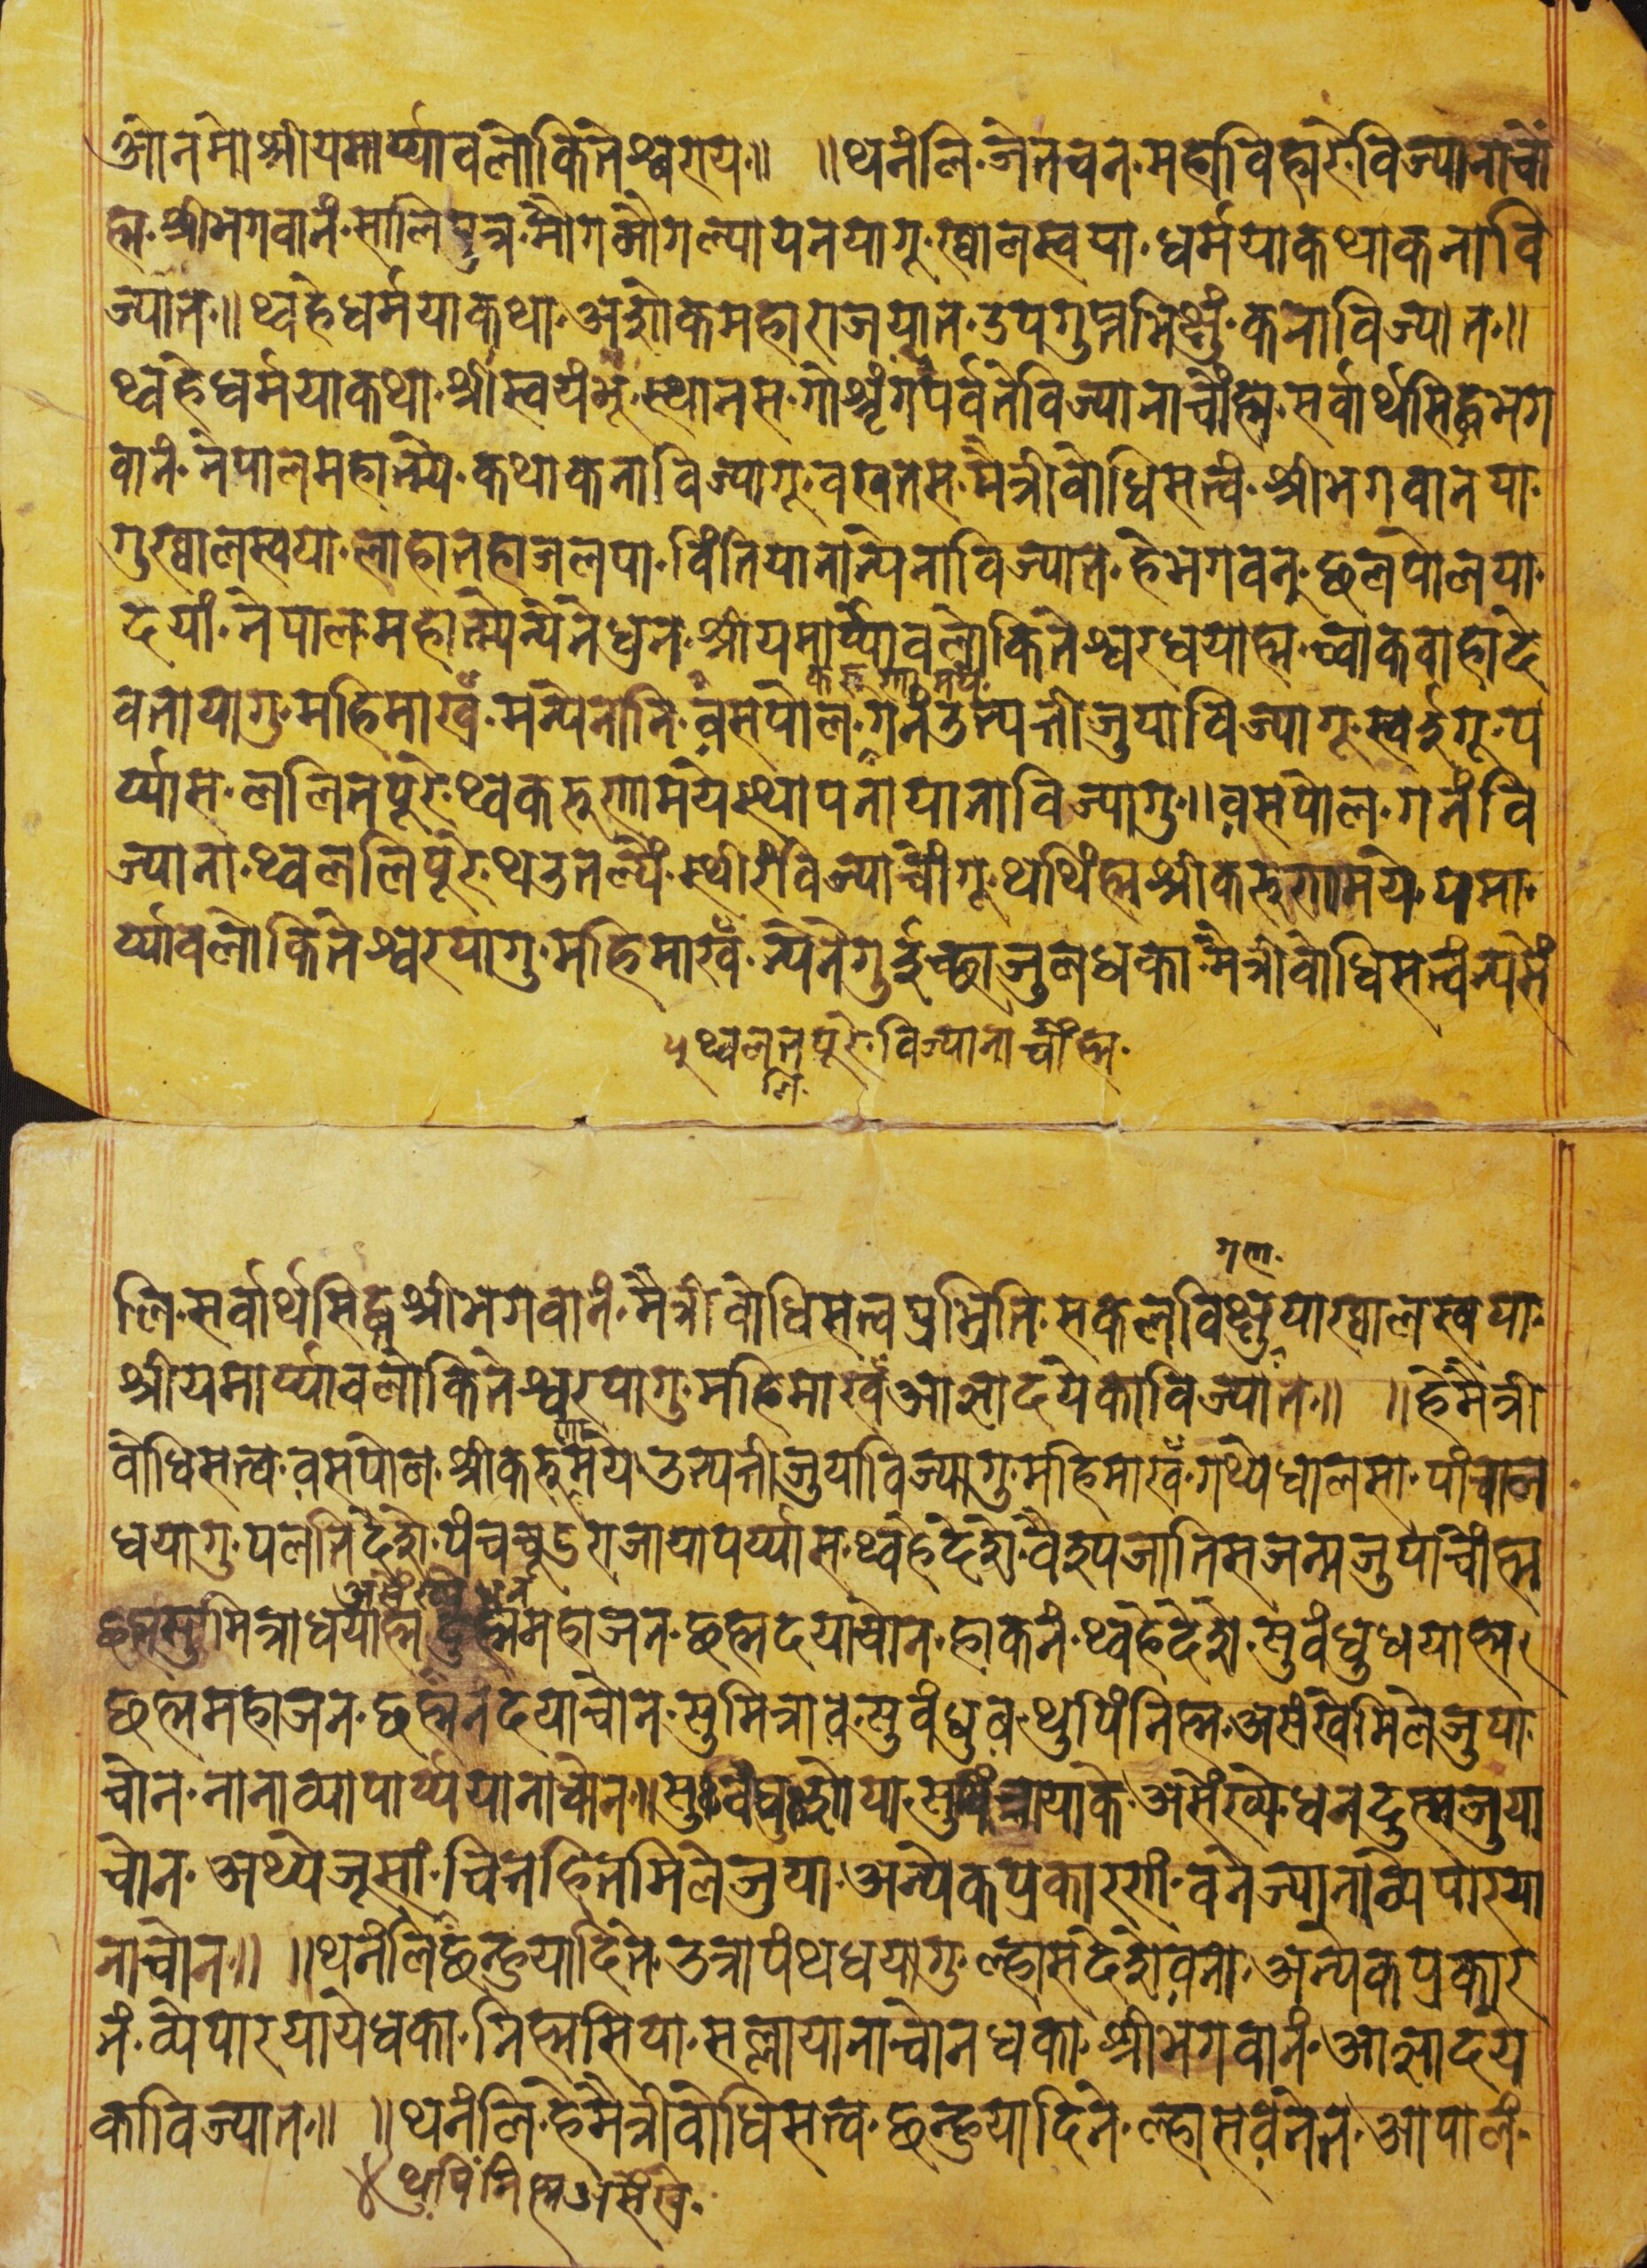 ओंनमो श्रीयमार्य्यावलोकितेश्वराय॥ ॥थनंलि·जेतवन·महाविहारे·विज्यानाचों
ह्म·श्रीभगवानं·सालिपुत्र·मौगमौगल्यायनयागू·ख्वालस्वया·धर्मयाकथाकनावि
ज्यात·॥थ्वहेधर्मयाकथा·अशोकमहाराजयात·उपगुप्तभिक्षुं·कनाविज्यात·॥
थ्वहेधर्मयाकथा·श्रीस्वयंभू·स्थानस·गोशृंगपर्वतेविज्यानाचोंह्म·सर्वार्थसिद्धभग
वानं·नेपालमहात्म्ये·कथाकनाविज्यागू·वखतस·मैत्रीवोधिसत्वं·श्रीभगवानया·
गुख्वालस्वया·लाहातहाजलपा·विंतियानान्येनाविज्यात·हेभगवन्·छलपोलया·
दयां·नेपाल·महात्म्येन्येनेधुन·श्रीयमार्य्यावलोकितेश्वरधयाह्म·च्वाकवाहादे
करुणामय·
वतायागु·महिमाखँ·मन्येनानि·वसपोल·गनंउत्पत्तीजुयाविज्यागू·स्वर्इगू·प
र्य्यास·ललितपूरे·थ्वकरुणामयेस्थापनायानाविज्यागु·॥वसपोल·गनंवि
ज्याना·थ्वललिपूरे·थउतल्यें·स्थीरंविज्याचोंगू·थथिंह्मश्रीकरुणामये·यमा·
र्य्यावलोकितेश्वरयागु·महिमाखँ·न्येनेगुर्इच्छाजुलधका·मैत्रीवोधिसत्वंन्येसें
पुथ्वलतपूरे·विज्यानाचोंह्म·
लि·
गण·
लि·सर्वार्थसिद्धश्रीभगवानं·मैत्रीवोधिसत्वप्रभ्रिति·सकलविक्षुयाख्वालस्वया·
श्रीयमार्य्यावलोकितेश्वरयागु·महिमाखँआज्ञादयेकाविज्यात·॥ ॥हेमैत्री
णा
वोधिसत्व·वसपोल·श्रीकरुमय·उत्पत्तीजुयाविज्यागु·महिमाखँ·गथ्येधालसा·पांचाल
धयागु·पलतिदेशे·पंचचूडराजायापर्य्यास·थ्वहेदेशे·वैश्यजातिसजन्मजुयाचोंह्म
असंख्ये धनं
छह्मसुमित्राधयाह्म ह्ममहाजन·छह्मदयाचोन·हाकनं·थ्वहेदेशे·सुवंधुधयाह्म·
छह्ममहाजन·छह्मनंदयाचोन·सुमित्राव·सुवंधुव·थुपिंनिह्म·असंखेमिलेजुया·
चोन·नानाव्यापार्य्ययानाचोन·॥सुवंधुयासुमित्रायाके·असंख्ये·धनदुह्मजुया
चोन·अथ्येजूसां·चित्तहितमिलेजुया·अन्येकप्रकारणं·वनेज्यानाव्येपारया
नाचोन·॥ ॥थनंलिछन्हुयादिने·उत्रापंथधयागु·ल्हासदेशेवना·अन्येकप्रकार
नं·व्येपारयायेधका·निह्मसिया·सल्लायानाचोनधका·श्रीभगवानं·आज्ञादये
काविज्यात·॥ ॥थनंलि·हेमैत्रीवोधिसत्व·छन्हुयादिने·ल्हासवनेत·आपालं·
४थुपिंनिह्मअसंखे·